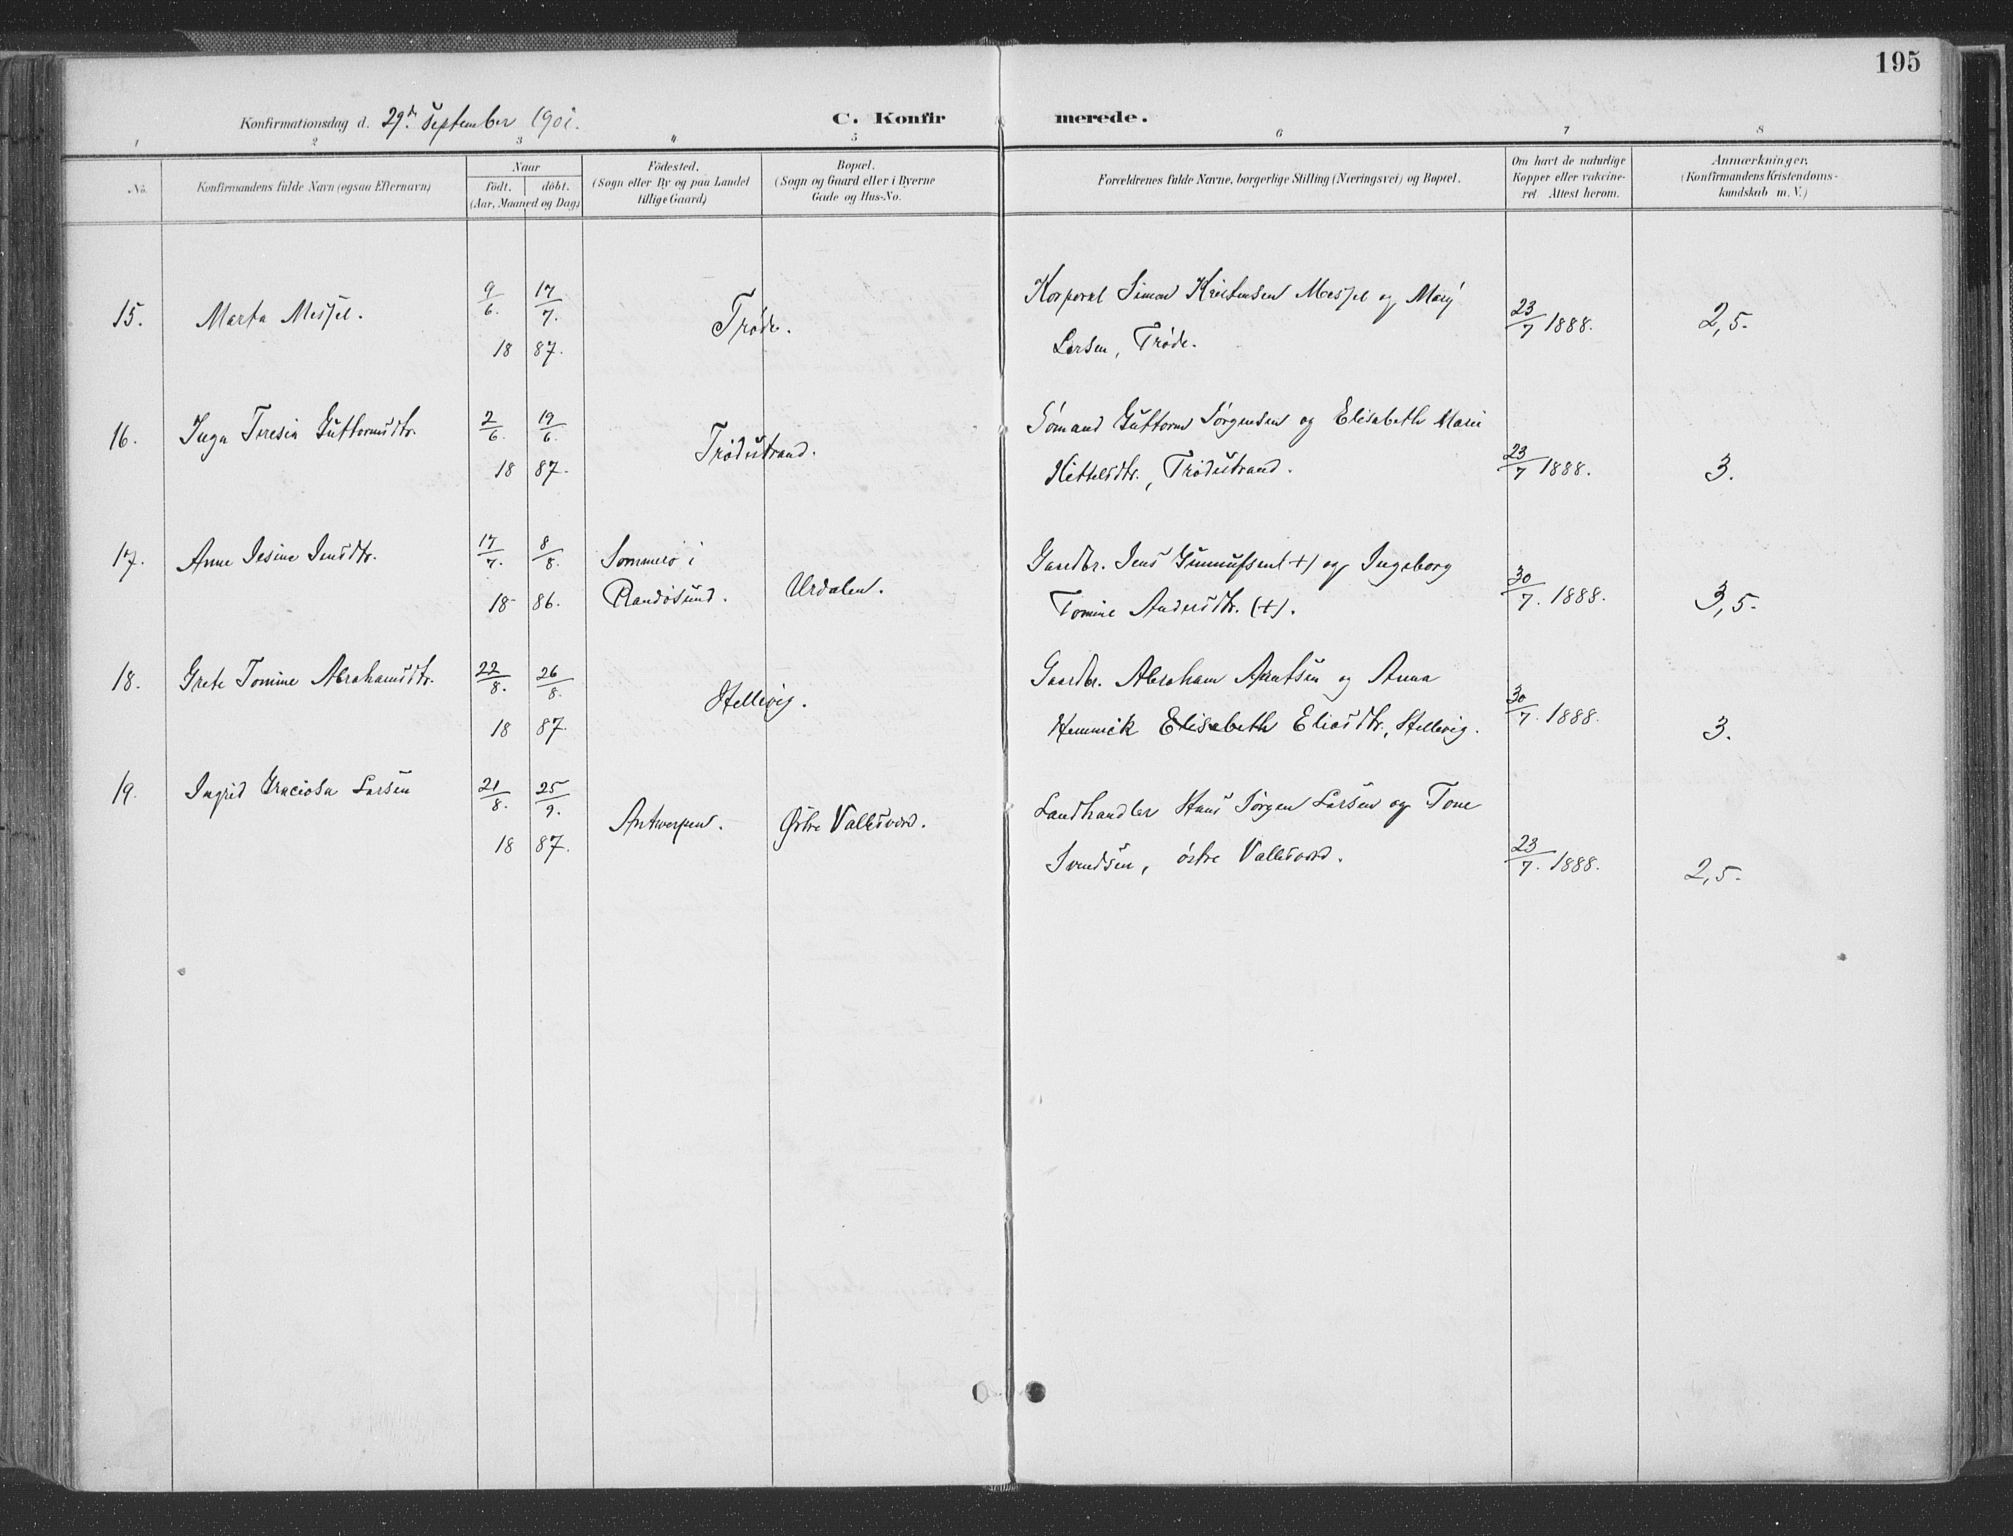 195
Konfirmationsdag d. 29de September 1901.
C. Konfir merede.
1 2 3 4 5 6 7 8
No.
Konfirmandens fulde Navn (ogsaa Efternavn)
Naar
født. døbt.
(Aar, Maaned og Dag)
Fødested.
(Sogn eller By og paa Landet
tillige Gaard)
Bopæl.
(Sogn og Gaard eller i Byerne
Gade og Hus-No.
Forældrenes fulde Navne, borgerlige Stilling (Næringsvei) og Bopæl.
Om havt de naturlige
Kopper eller vakcine-
ret. Attest herom.
Anmærkninger.
(Konfirmandens Kristendoms-
kundskab m. V.)
15. Marta Messel. 9/6. 17/7. 18 87. Trøde.
Korporal Simon Kristensen Messel og Mary
Larsen, Trøde. 23/7 1888. 2,5.
16. Inga Teresia Guttormsdtr. 2/6. 19/6. 18 87. Trødestrand.
Sømand Guttorm Jørgensen og Elisabeth Marie
Kittelsdtr., Trødestrand. 23/7 1888. 3.
17. Anne Jesine Jensdtr. 17/7. 8/8. 18 86. Sommerø i
Randøsund. Urdalen.
Gaardbr. Jens Gunnufsen (+) og Ingeborg
Tomine Andersdtr. (+). 30/7. 1888. 3,5.
18. Grete Tomine Abrahamsdtr. 22/8. 26/8. 18 87. Hellevig.
Gaardbr. Abraham Arntsen og Anna
Elisabeth Eliasdtr., Hellevig. 30/7. 1888. 3.
19. Ingrid Graciosa Larsen 21/8. 25/9. 18 87. Antwerpen. Østre Vallesværd.
Landhandler Hans Jørgen Larsen og Tone
Svendsen, østre Vallesværd. 23/7. 1888. 2,5.